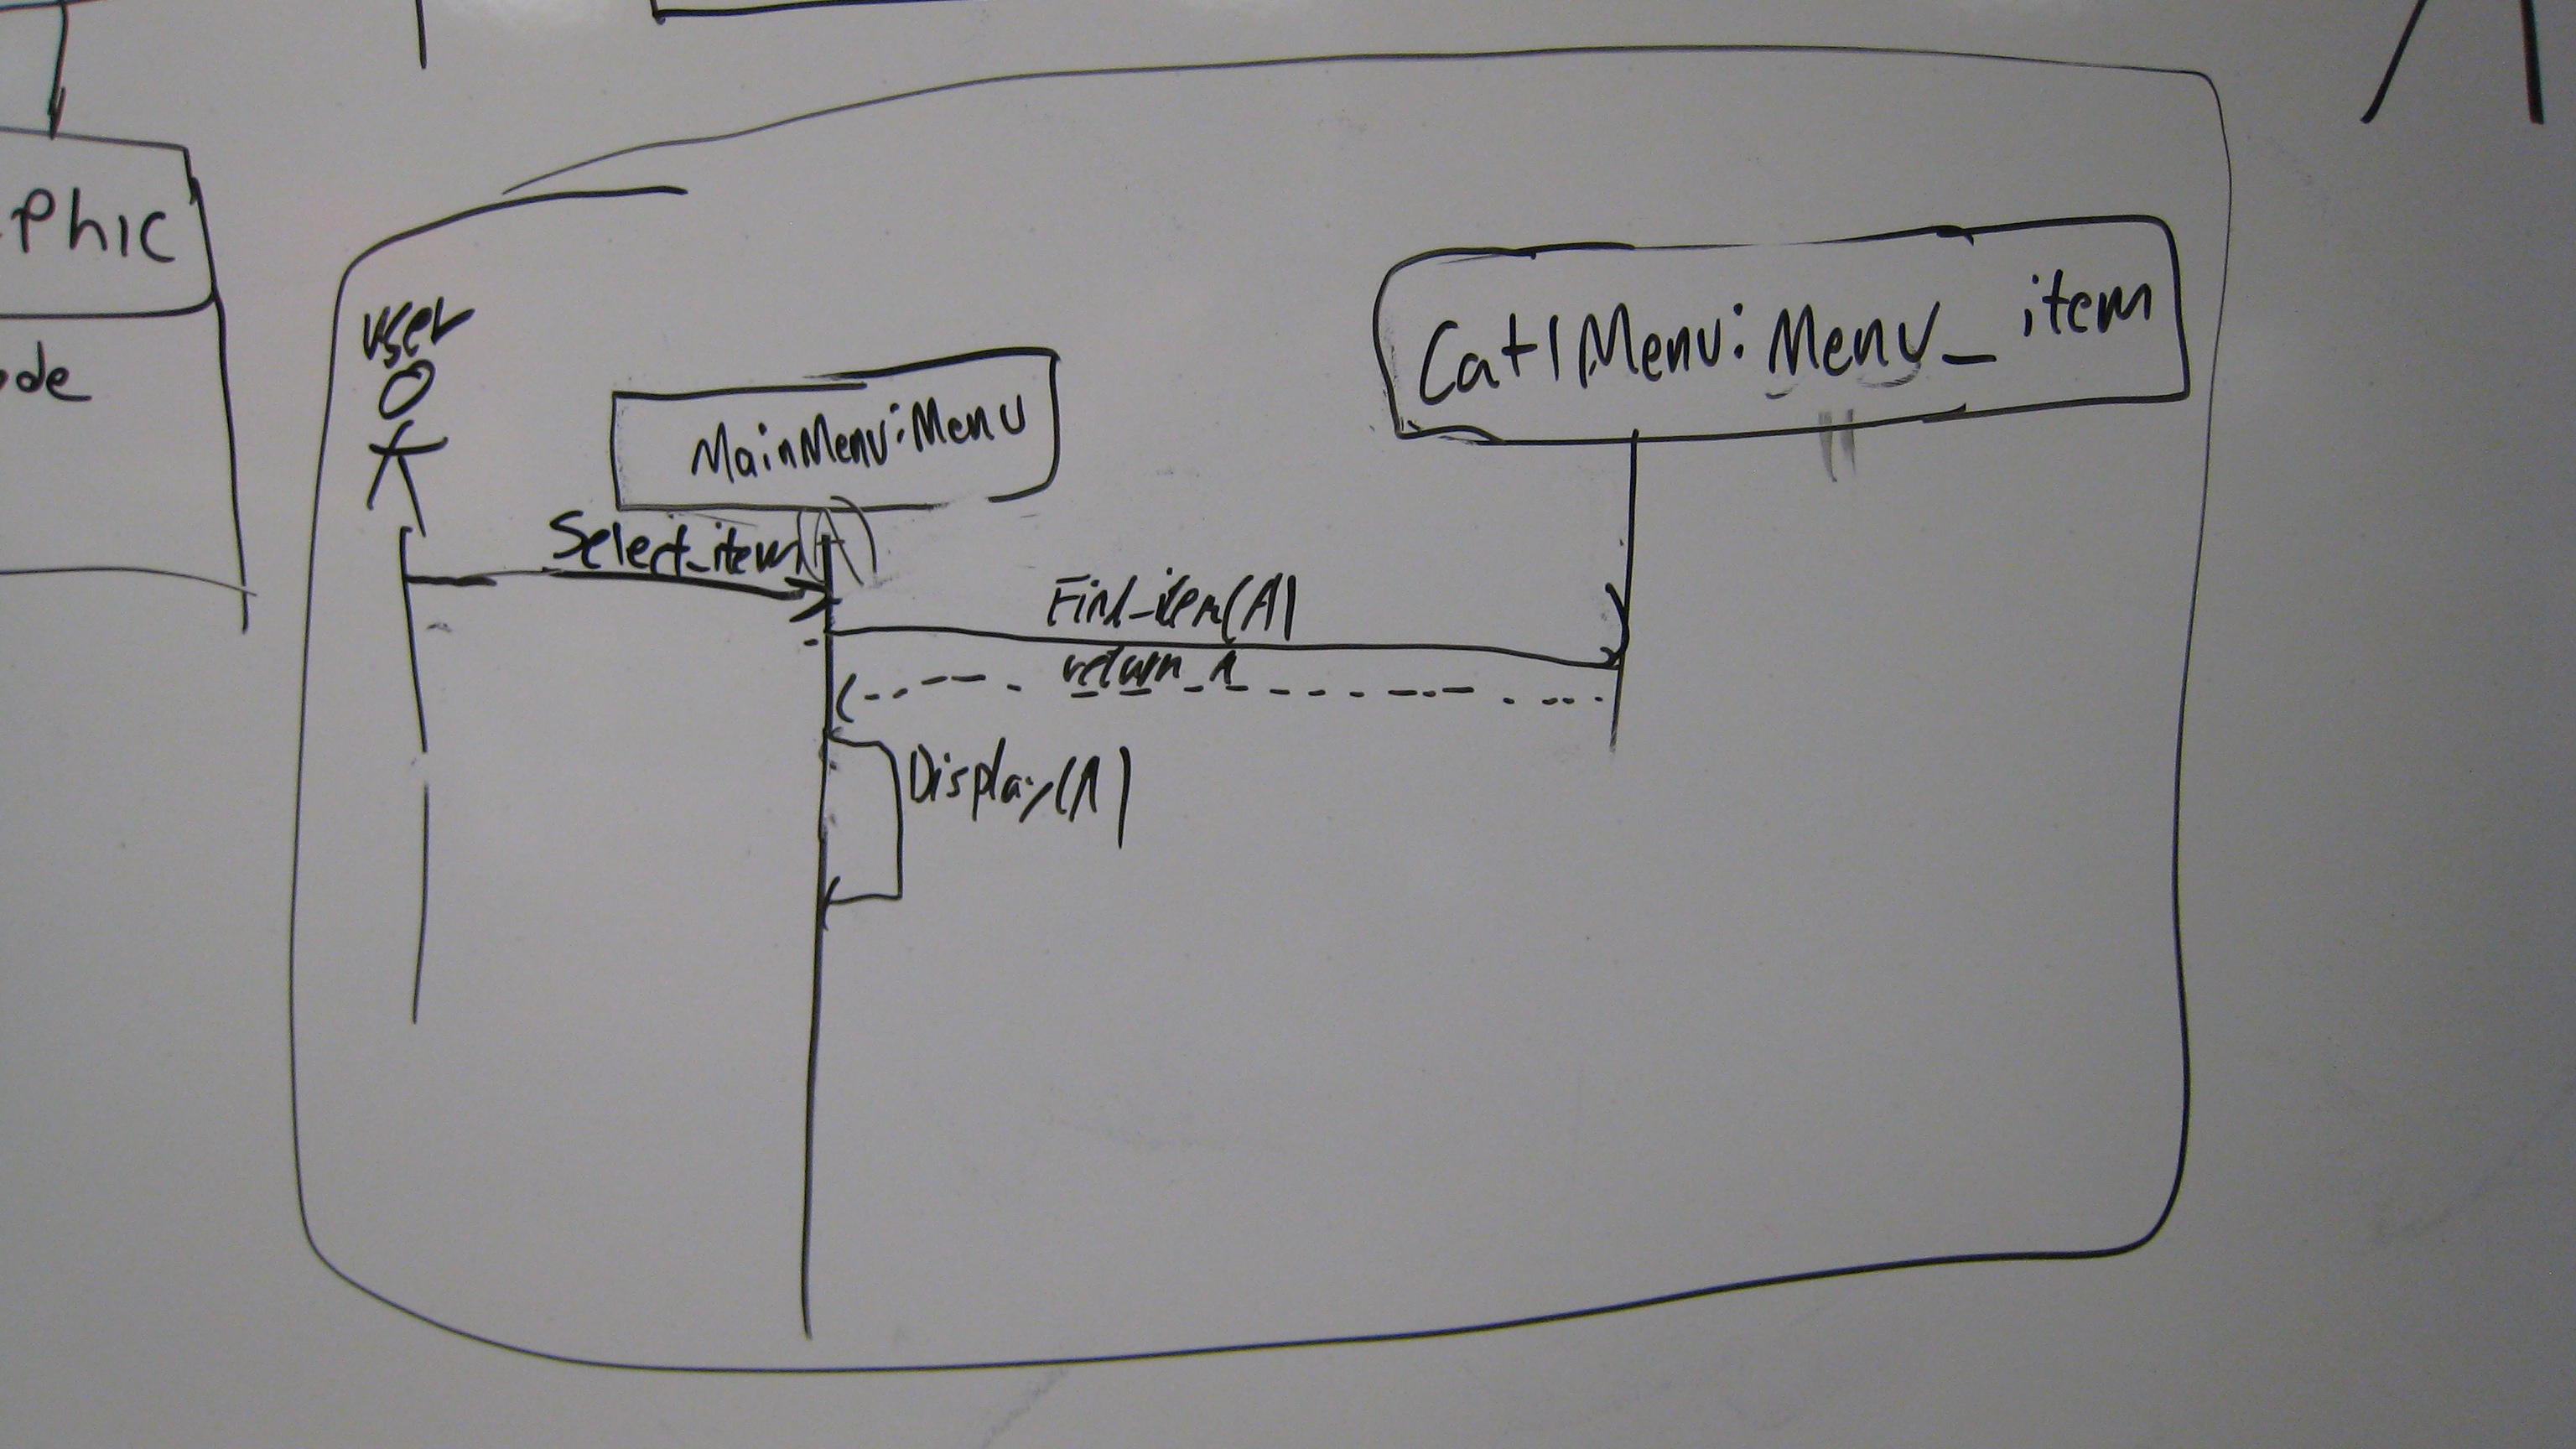 Phic
ode
user
MainMenu:Menu
Cat1Menu:Menu_item
Select_item(A)
Find_item(A)
return A
Display(A)